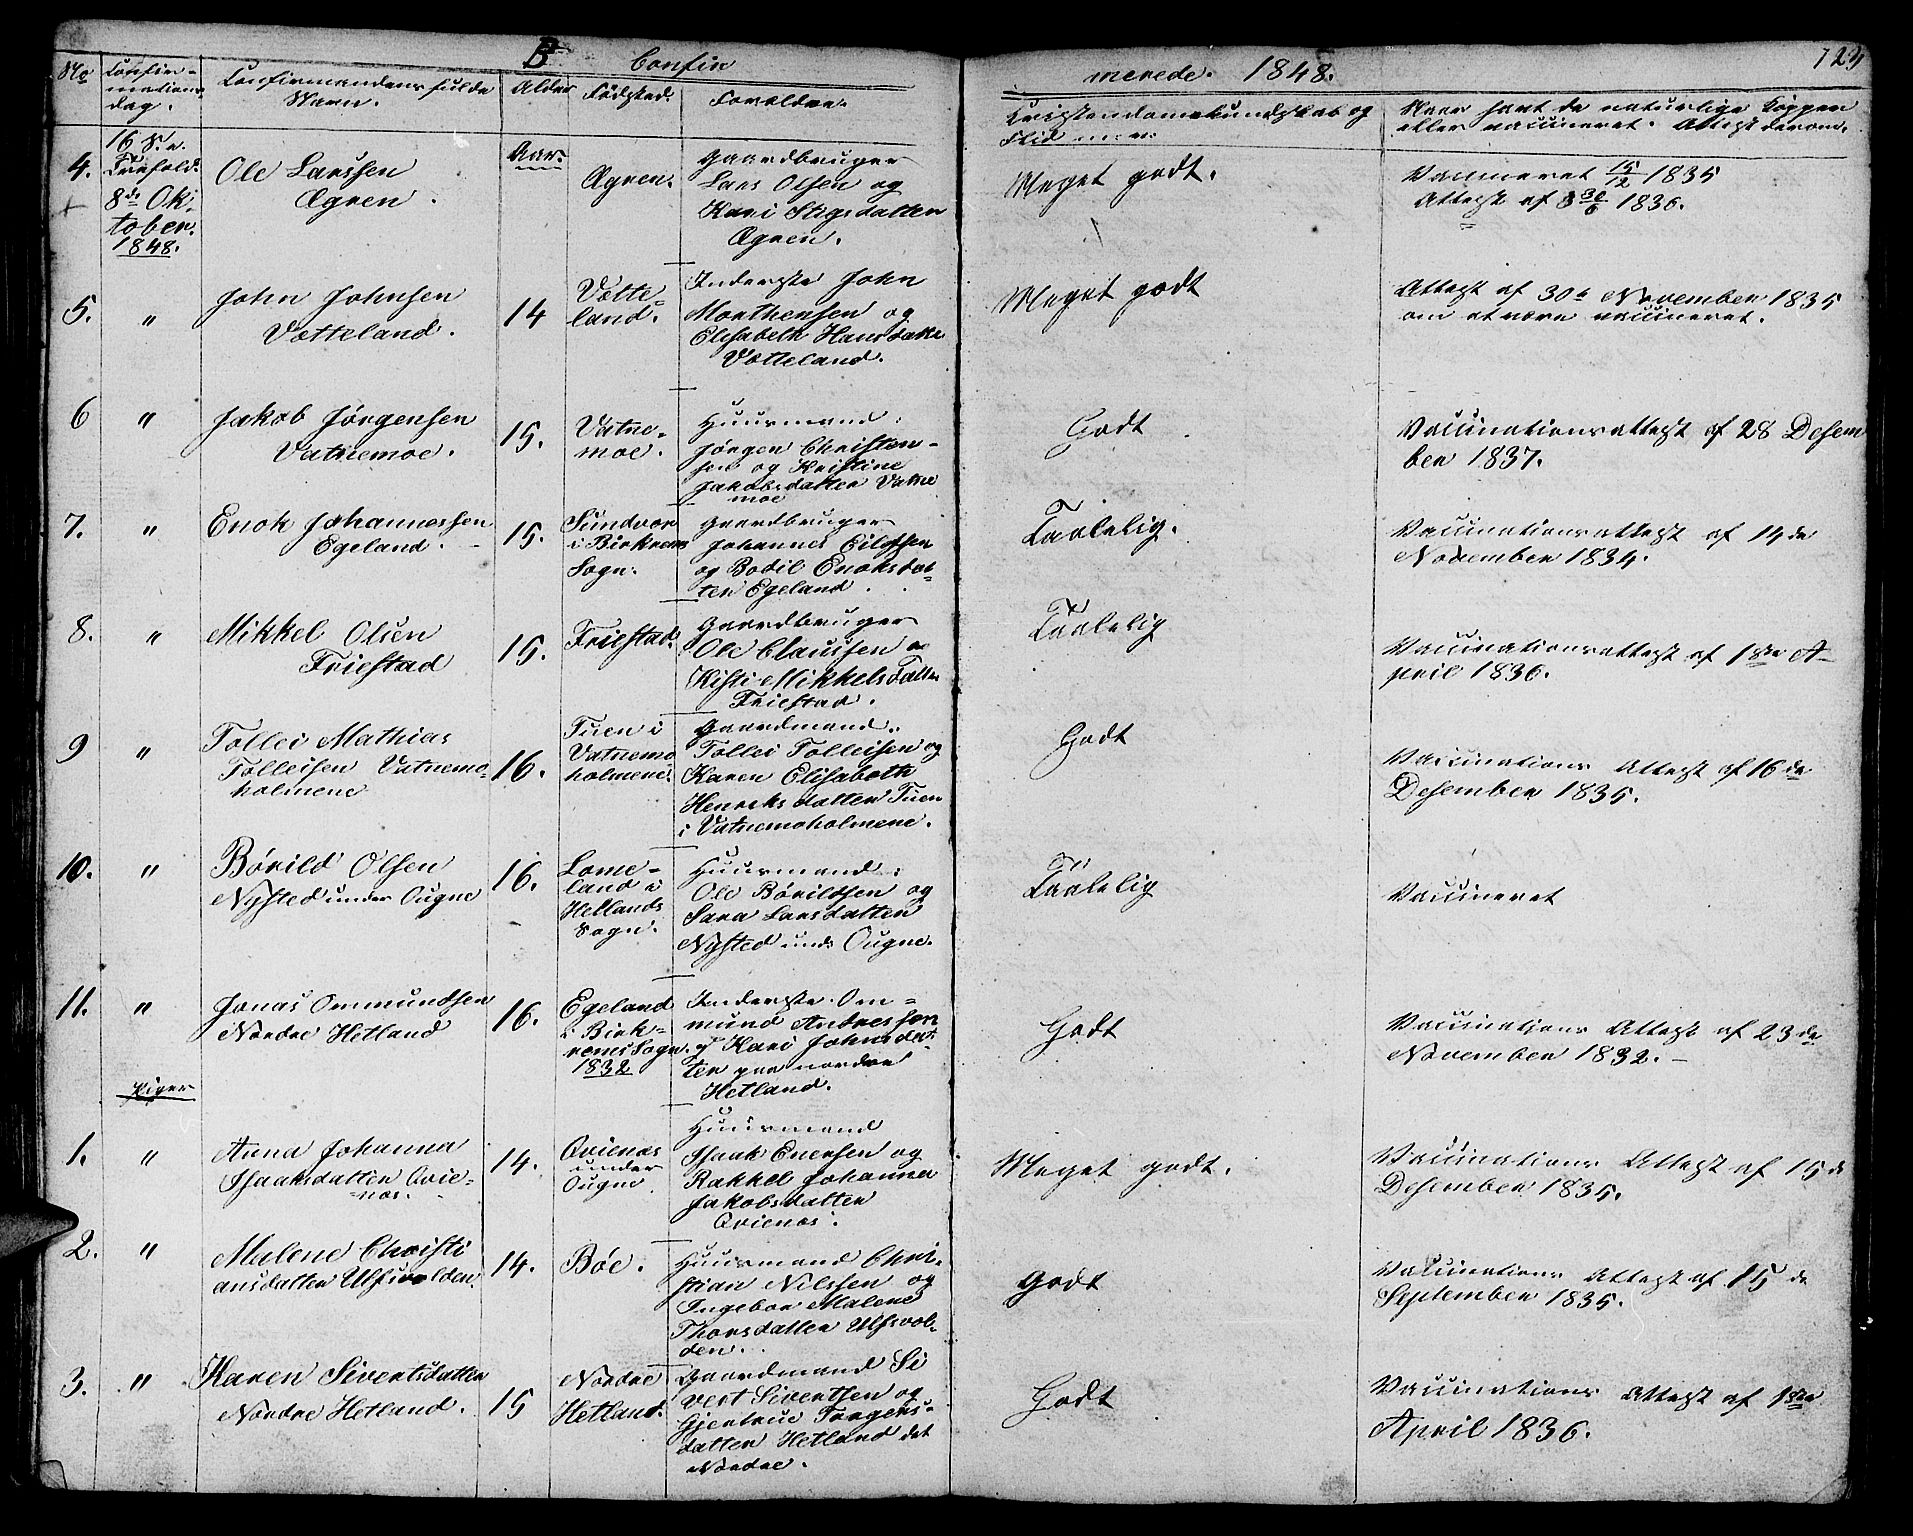 B
Confir
merede. 1848.
123
No
Confir-
mations
dag.
Confirmandens fulde
Navn.
Alder
Fødsted.
Forældre.
Kristendomskundskab og
Flid m. v.
Naar havt de naturlige Kopper
eller vaccineret. Attest derom.
4.
16 S. e.
Trefold.
8de Ok-
tober.
1848.
Ole Larssen
Øgren.
Aar.
Øgren.
Gaardbruger
Lars Olsen og
Kari Stigsdatter
Øgren.
Meget godt.
Vaccineret 15/12 1835
Attest af 30/6 1836.
5.
"
John Johnsen
Vætteland.
14
Vætte-
land.
Inderste John
Morthensen og
Elisabeth Hansdatte
Vætteland.
Meget godt
Attest af 30te November 1835
om at være vaccineret.
6
"
Jakob Jörgensen
Vatnemoe.
15.
Vatne-
moe.
Huusmand
Jörgen Christen-
sen og Kristine
Jakobsdatter Vatne
moe
Godt
Vaccinationsattest af 28 Desem
ber 1837.
7.
"
Enok Johannessen
Egeland.
15.
Sundvor
i Birkrems
Sogn.
Gaardbruger
Johannes Eilertsen
og Bodil Enoksdat-
ter Egeland.
Taalelig.
Vaccinationsattest af 14de
November 1834.
8.
"
Mikkel Olsen
Friestad
15.
Friestad.
Gaardbruger
Ole Claussen og
Kisti Mikkelsdatter
Friestad.
Taalelig
Vaccinationsattest af 1ste A-
pril 1836.
9
"
Tollei Mathias
Tolleisen Vatnemo-
holmene
16.
Tuen i
Vatnemo
holmene.
Gaardmand
Tollei Tolleisen og
Karen Elisabeth
Henriksdatter Tuen
i Vatnemoholmene.
Godt
Vaccinations Attest af 16de
Desember 1835.
10.
"
Börild Olsen
Nysted under Ougne
16.
Lome-
land i
Hellands
Sogn.
Huusmand
Ole Börildsen og
Sara Larsdatter
Nysted und. Ougne.
Taalelig
Vaccineret
11.
"
Jonas Ommundsen
Nordre Hetland
16.
Egeland
i Birk-
rems Sogn.
1832
Inderste Om-
mund Andressen
og Kari Johnsdat-
ter paa nordre
Hetland.
Godt
Vaccinations Attest af 23de
November 1832.
Piger
1.
"
Anna Johanna
Isaaksdatter Qvie-
næs.
14.
Qvienæs
under
Ougne
Huusmand
Isaak Enersen og
Rakkel Johanna
Jakobsdatter
Qvienæs.
Meget godt.
Vaccinations Attest af 15de
Desember 1835.
2.
"
Malene Christi
ansdatter Ulfsvolden.
14.
Böe.
Huusmand Chri-
stian Nilssen og
Ingebor Malene
Thorsdatter Ulfsvol-
den.
Godt
Vaccinations Attest af 15de
September 1835.
3.
"
Karen Sivertsdatter
Nordre Hetland.
15
Nordre
Hetland.
Gaardmand Si
vert Sivertsen og
Gjertrue Torgers-
datter Hetland det
Nordre.
Godt
Vaccinations Attest af 1ste
April 1836.